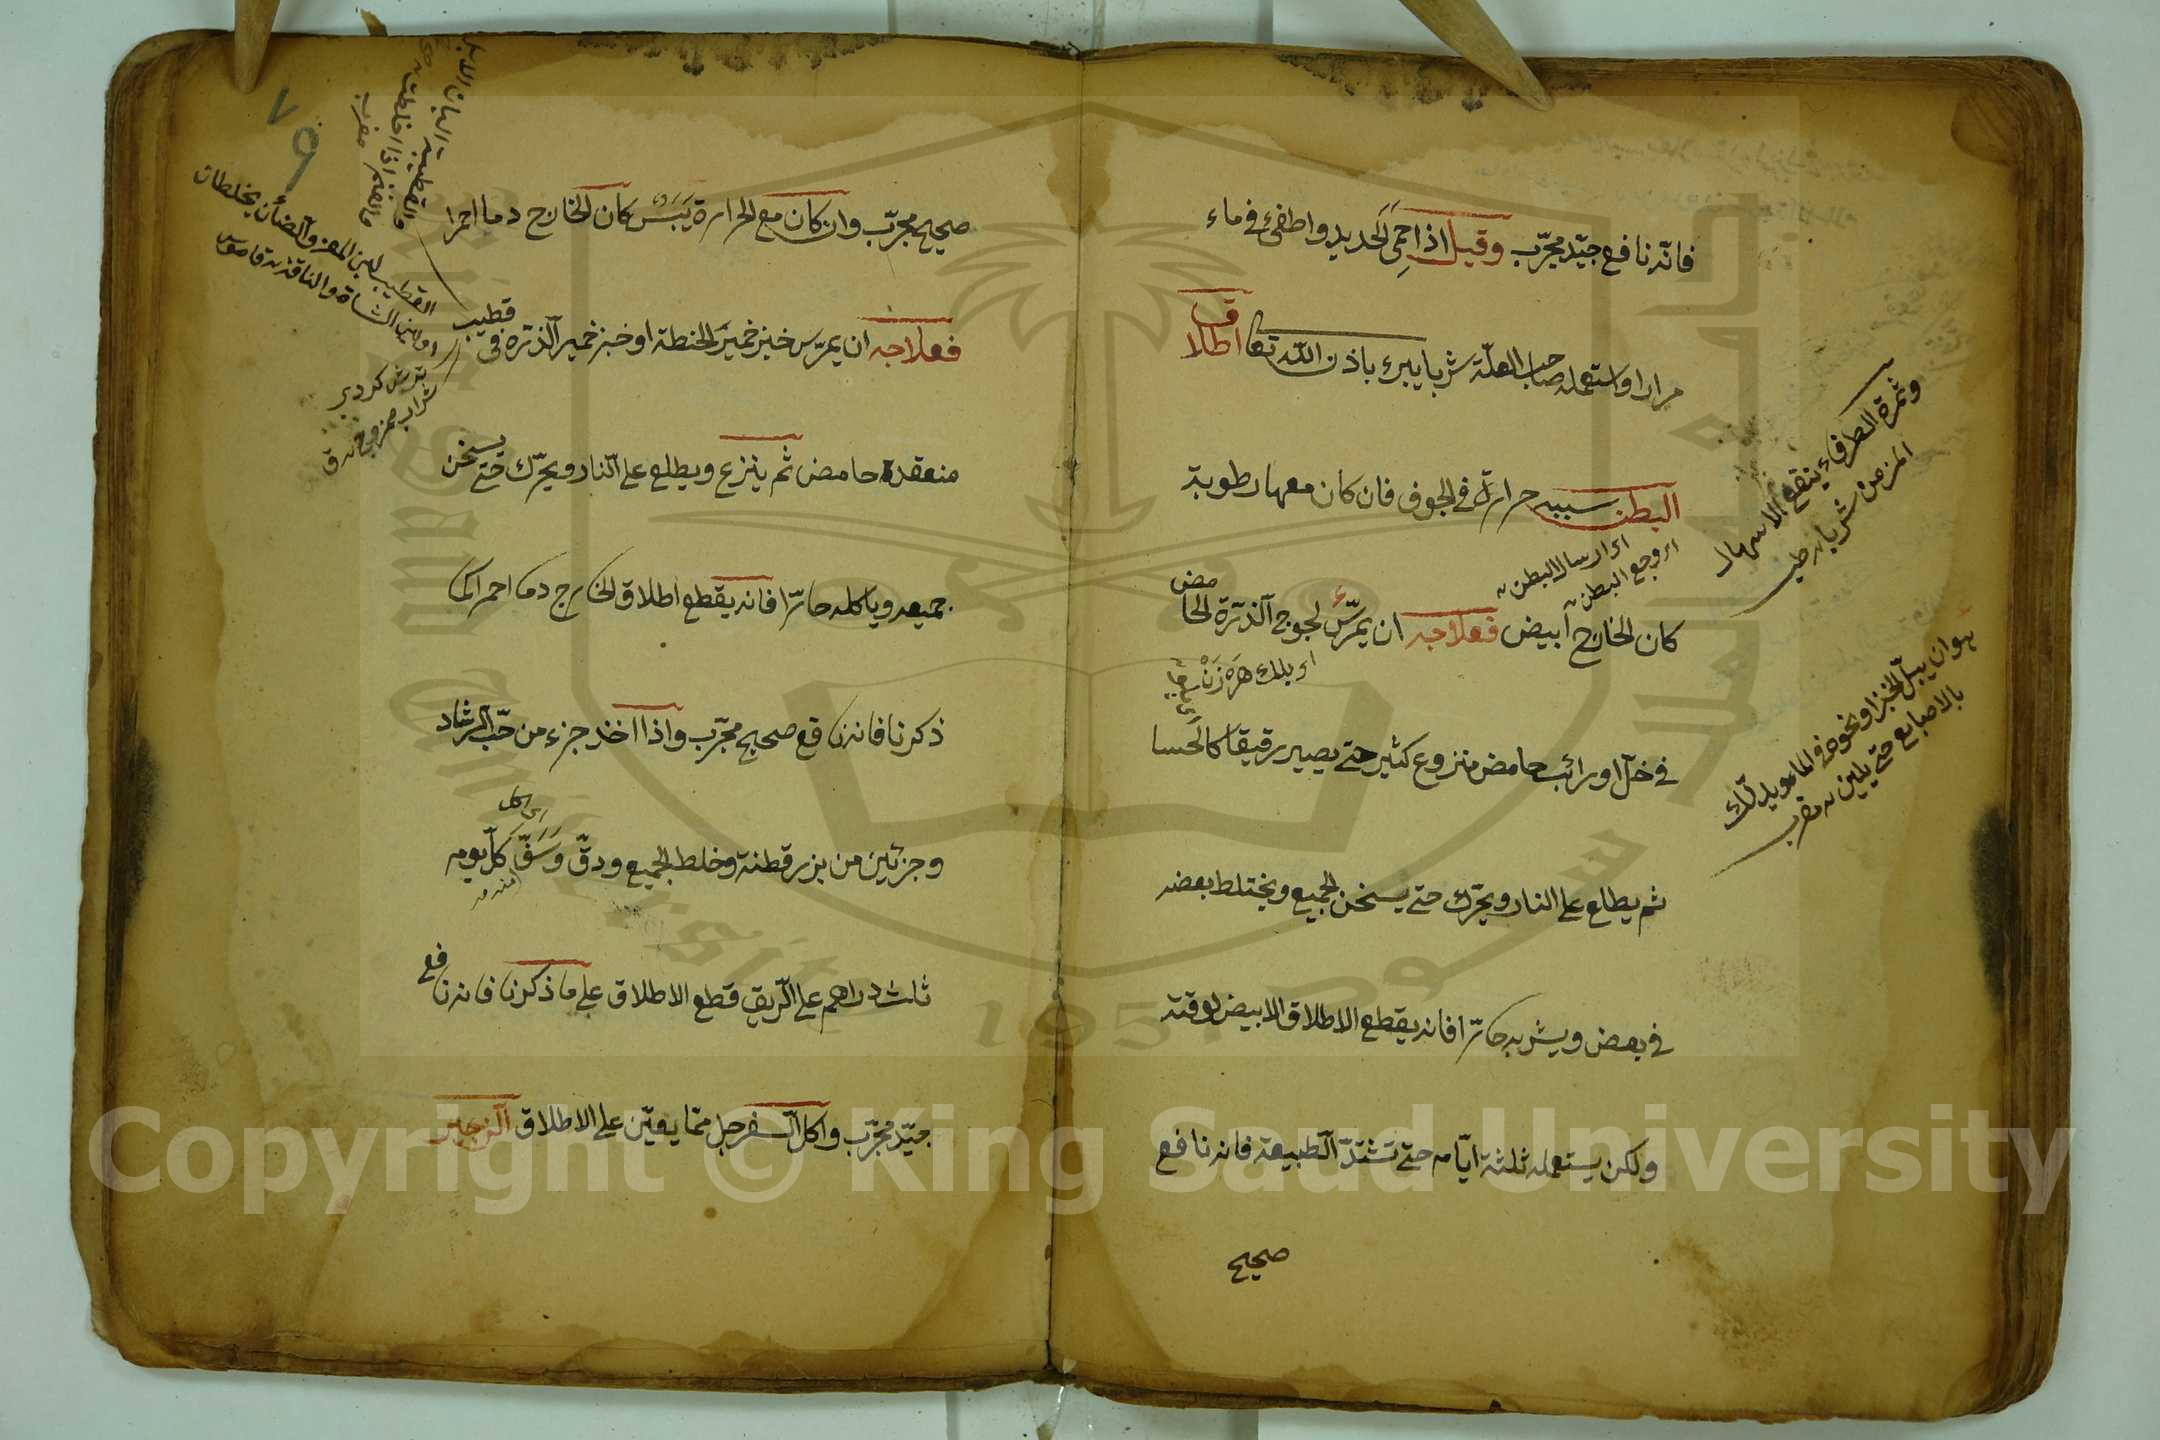 فانّه نافع جيّد مجرّب وقيل اذا حُمِيَ الحديد واطفئ في ماء
مرارا واستعمله صاحب العلّة شربا يبرء باذن اللّه تعا اطلاق
البطن سببه حرارة في الجوف فان كان معها رطوبة
اى ارسال البطن
اى وجع البطن
كان الخارج ابيض فعلاجه ان يمرّس لحوج الذّرة الحامض
في خلّ او رائب حامض منزوع كثير حتى يصير رقيقا كالحسا
ثم يطلع على النار ويحرّك حتى يسخن الجميع ويختلط بعضه
في بعض ويشربه حارّا فانه يقطع الاطلاق الابيض لوقته
ولكن يستعمله ثلثة ايّام حتى تشتدّ الطبيعة فانه نافع
صحيح
وثمرة الطرفاء ينفع الاسهال
المزمن شربا طب
هو ان يبلّ الخبز او نحوه في الماء ويدلّك
بالاصابع حتى يلين مغرب
٧٩
صحيح مجرّب وان كان مع الحرارة يَبَس كان الخارج دما احمرا
فعلاجه ان يمرّس خبز خمير الحنطة او خبز خمير الذّرة في قطيب
منعقدة حامض ثم ينزع ويطلع على النار ويحرّك حتى يسخن
جميعه وياكله حارّا فانه يقطع اطلاق الخارج دما احمر كما
ذكرنا فانه نافع صحيح مجرّب واذا اخذ جزء من حبّ الرشاد
اى اكل
وجزئين من بزر قطنة وخلط الجميع ودقّ وَسَفّ كلّ يوم
منه
ثلث دراهم على الرّيق قطع الاطلاق على ما ذكرنا فانه نافع
جيّد مجرّب واكل السّفرجل ممّا يعيّن على الاطلاق الزحير
والغنم اذا خلطت
القطيب لبن المعز والضأن يخلطان
او لبن الشاة والناقة قاموس
شراب ممزوج ق